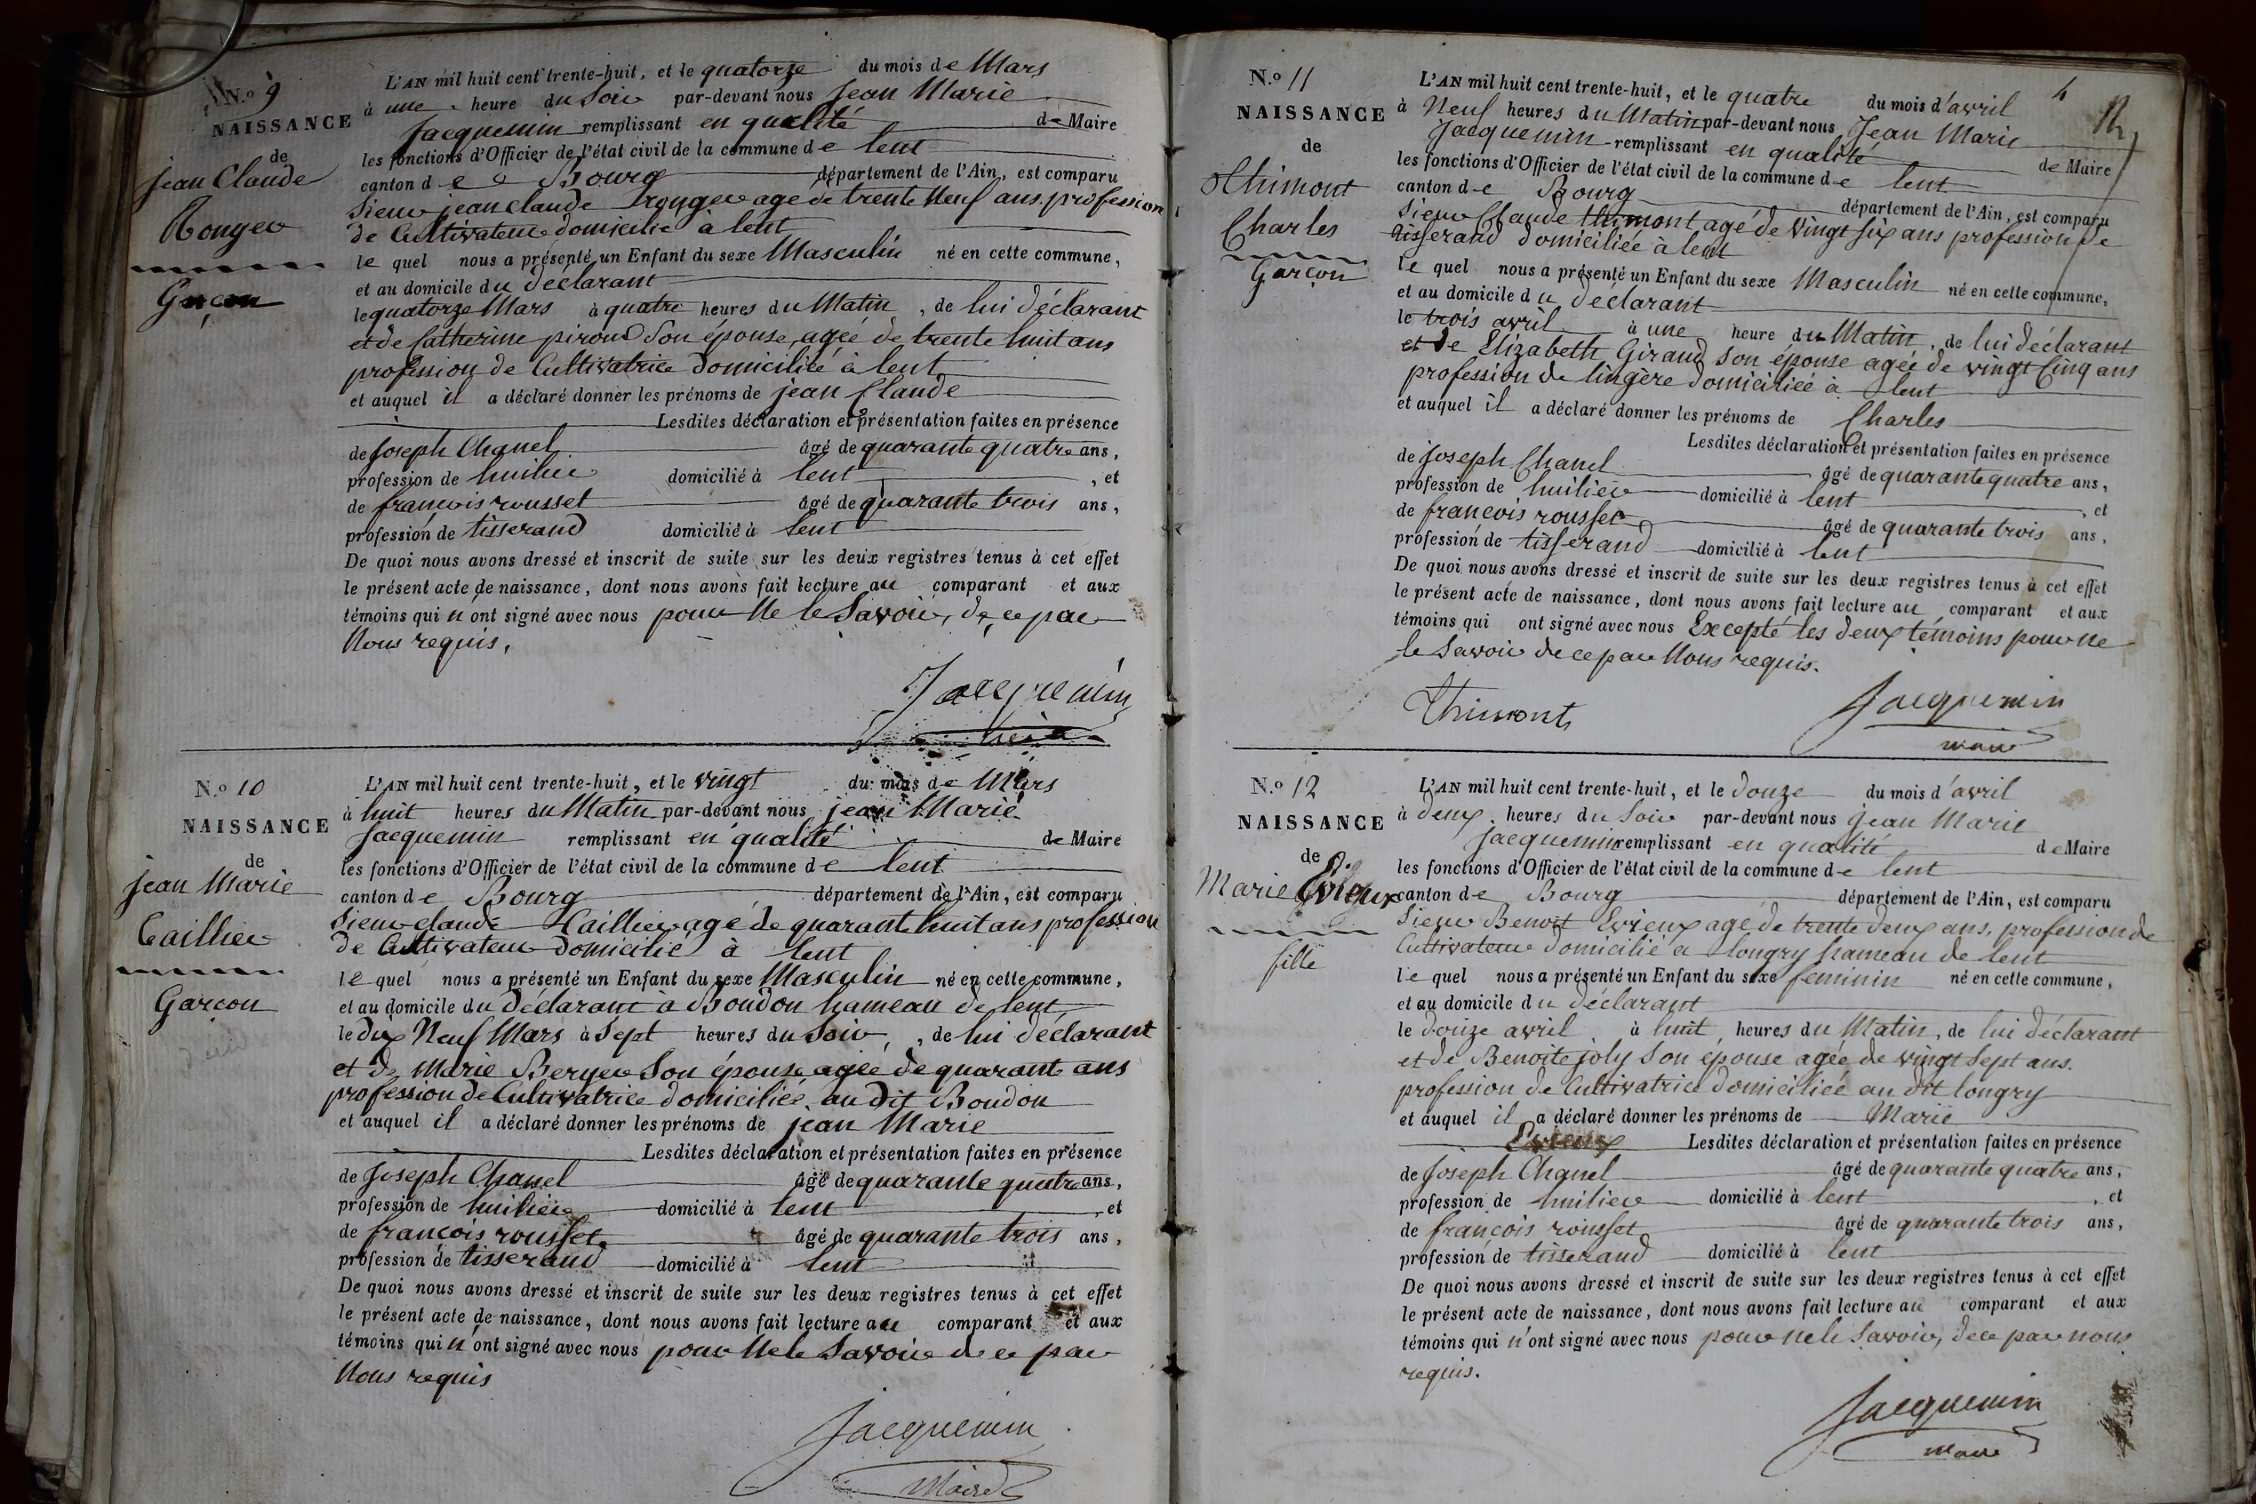 N.o 9
NAISSANCE
de
jean Claude
Ronger
Garçon
L'AN mil huit cent trente-huit, et le quatorze du mois de Mars
à une heure du Soir par-devant nous Jean Marie
Jacquemin remplissant en qualité de Maire
les fonctions d'Officier de l'état civil de la commune de lent
canton de Bourg département de l'Ain, est comparu
Sieur jean claude Ronger agé de trente Neuf ans, profession
de Cultivateur domicilié à lent
le quel nous a présenté un Enfant du sexe Masculin né en cette commune,
et au domicile du déclarant
le quatorze Mars à quatre heures du Matin, de lui déclarant
et de Catherine piroud Son épouse, agée de trente huit ans
profession de Cultivatrice domicilié à lent
et auquel il a déclaré donner les prénoms de jean Claude
Lesdites déclaration et présentation faites en présence
de Joseph Chanel âgé de quarante quatre ans,
profession de huilier domicilié à lent, et
de françois rousset âgé de quarante trois ans,
profession de tisserand domicilié à lent
De quoi nous avons dressé et inscrit de suite sur les deux registres tenus à cet effet
le présent acte de naissance, dont nous avons fait lecture au comparant et aux
témoins qui n'ont signé avec nous pour Ne le Savoir, de ce par
Nous requis,
Jacquemin
maire
N.o 10
NAISSANCE
de
jean Marie
Caillier
Garçon
L'AN mil huit cent trente-huit, et le vingt du mois de Mars
à huit heures du Matin par-devant nous jean Marie
Jacquemin remplissant en qualité de Maire
les fonctions d'Officier de l'état civil de la commune de lent
canton de Bourg département de l'Ain, est comparu
Sieur claude Caillier agé de quarant huit ans profession
de Cultivateur domicilié à lent
le quel nous a présenté un Enfant du sexe Masculin né en cette commune,
et au domicile du déclarant à Boudon hameau de lent
le dix Neuf Mars à Sept heures du Soir, de lui déclarant
et de Marie Berger Son épouse agée de quarant ans
profession de Cultivatrice domiciliée au dit Boudon
et auquel il a déclaré donner les prénoms de jean Marie
Lesdites déclaration et présentation faites en présence
de Joseph Chanel âgé de quarante quatre ans,
profession de huilier domicilié à lent, et
de françois rousset âgé de quarante trois ans,
profession de tisserand domicilié à lent
De quoi nous avons dressé et inscrit de suite sur les deux registres tenus à cet effet
le présent acte de naissance, dont nous avons fait lecture au comparant et aux
témoins qui n'ont signé avec nous pour Ne le Savoir de ce par
Nous requis
Jacquemin
Maire
4
N.o 11
NAISSANCE
de
thimont
Charles
Garçon
L'AN mil huit cent trente-huit, et le quatre du mois d'avril
à Neuf heures du Matin par-devant nous Jean Marie
Jacquemin remplissant en qualité de Maire
les fonctions d'Officier de l'état civil de la commune de lent
canton de Bourg département de l'Ain, est comparu
Sieur Claude thimont, agé de vingt six ans profession de
tisserand domiciliée à lent
le quel nous a présenté un Enfant du sexe Masculin né en cette commune,
et au domicile du déclarant
le trois avril à une heure du Matin, de lui déclarant
et de Elizabeth Giraud son épouse agée de vingt Cinq ans
profession de lingère domiciliée à lent
et auquel il a déclaré donner les prénoms de Charles
Lesdites déclaration et présentation faites en présence
de Joseph Chanel âgé de quarante quatre ans,
profession de huilier domicilié à lent, et
de françois rousset âgé de quarante trois ans,
profession de tisserand domicilié à lent
De quoi nous avons dressé et inscrit de suite sur les deux registres tenus à cet effet
le présent acte de naissance, dont nous avons fait lecture au comparant et aux
témoins qui ont signé avec nous Excepté les deux témoins pour ne
le Savoir de ce par Nous requis.
Thimont
Jacquemin
maire
N.o 12
NAISSANCE
de
Marie Evieux
fille
L'AN mil huit cent trente-huit, et le douze du mois d'avril
à deux heures du Soir par-devant nous jean Marie
Jacquemin remplissant en qualité de Maire
les fonctions d'Officier de l'état civil de la commune de lent
canton de Bourg département de l'Ain, est comparu
Sieur Benoit Evieux agé de trente deux ans, profession de
Cultivateur domicilié a longry hameau de lent
le quel nous a présenté un Enfant du sexe feminin né en cette commune,
et au domicile du déclarant
le douze avril à huit heures du Matin, de lui déclarant
et de Benoite joly Son épouse agée de vingt Sept ans.
profession de Cultivatrice domiciliée au dit longry
et auquel il a déclaré donner les prénoms de Marie
Evieux Lesdites déclaration et présentation faites en présence
de Joseph Chanel âgé de quarante quatre ans,
profession de huilier domicilié à lent, et
de françois rousset âgé de quarante trois ans,
profession de tisserand domicilié à lent
De quoi nous avons dressé et inscrit de suite sur les deux registres tenus à cet effet
le présent acte de naissance, dont nous avons fait lecture au comparant et aux
témoins qui n'ont signé avec nous pour ne le Savoir, de ce par nous
requis.
Jacquemin
maire